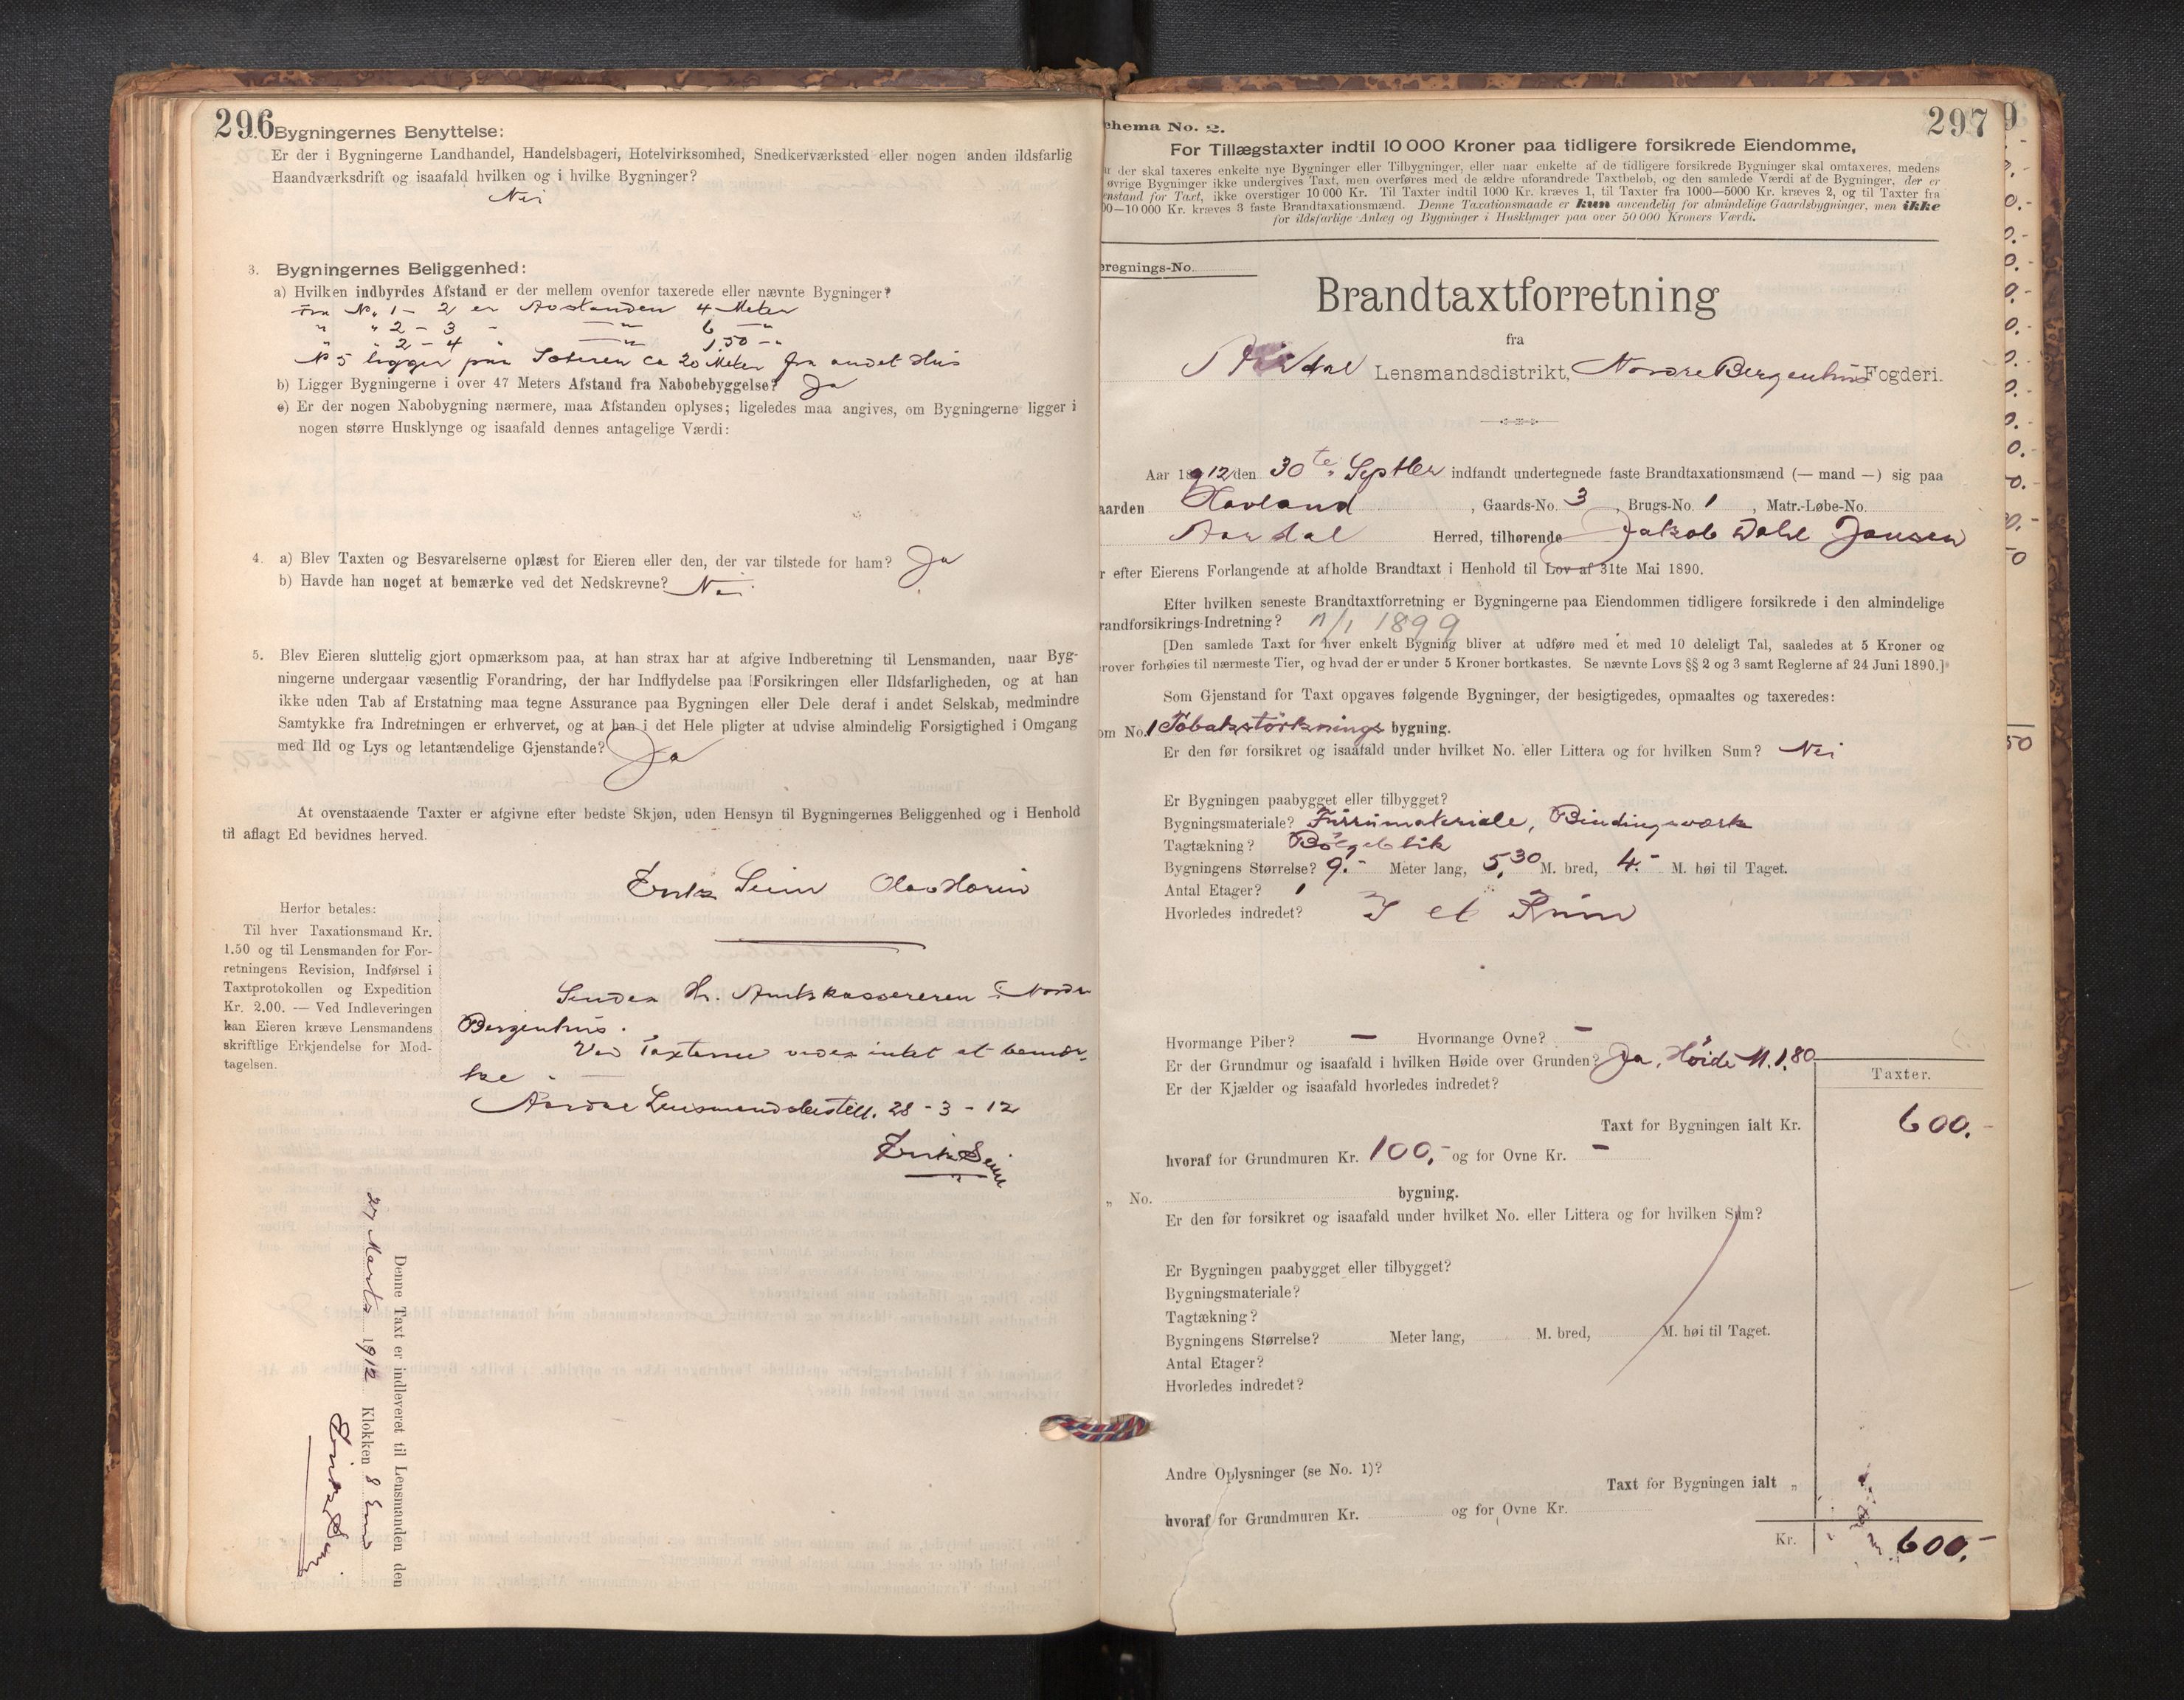 296
Bygningernes Benyttelse:
Er der i Bygningerne Landhandel, Handelsbageri, Hotelvirksomhed, Snedkerværksted eller nogen anden ildsfarlig
Haandværksdrift og isaafald hvilken og i hvilke Bygninger?
Nei
3. Bygningernes Beliggenhed:
a) Hvilken indbyrdes Afstand er der mellem ovenfor taxerede eller nævnte Bygninger?
Fra No. 1 - 2 er Avstanden 4 Meter
" " 2 - 3 - —"— 6 —"
" " 2 - 4 " —"— 1,50 -"
No 5 ligger paa Sæteren ca 20 Meter fra andet Hus
b) Ligger Bygningerne i over 47 Meters Afstand fra Nabobebyggelse? Ja
c) Er der nogen Nabobygning nærmere, maa Afstanden oplyses; ligeledes maa angives, om Bygningerne ligger i
nogen større Husklynge og isaafald dennes antagelige Værdi:
4. a) Blev Taxten og Besvarelserne oplæst for Eieren eller den, der var tilstede for ham? Ja
b) Havde han noget at bemærke ved det Nedskrevne? Nei.
5. Blev Eieren sluttelig gjort opmærksom paa, at han strax har at afgive Indberetning til Lensmanden, naar Byg-
ningerne undergaar væsentlig Forandring, der har Indflydelse paa Forsikringen eller Ildsfarligheden, og at han
ikke uden Tab af Erstatning maa tegne Assurance paa Bygningen eller Dele deraf i andet Selskab, medmindre
Samtykke fra Indretningen er erhvervet, og at han i det Hele pligter at udvise almindelig Forsigtighed i Omgang
med Ild og Lys og letantændelige Gjenstande? Ja
At ovenstaaende Taxter er afgivne efter bedste Skjøn, uden Hensyn til Bygningernes Beliggenhed og i Henhold
til aflagt Ed bevidnes herved.
Erik Seim Olav
Herfor betales:
Til hver Taxationsmand Kr.
1.50 og til Lensmanden for For-
retningens Revision, Indførsel i
Taxtprotokollen og Expedition
Kr. 2.00. — Ved Indleveringen
kan Eieren kræve Lensmandens
skriftlige Erkjendelse for Mod-
tagelsen.
Sendes Hr. Amtskassereren i Nordre
Bergenhus.
Ved Taxterne vides intet at bemær-
ke. —
Aardal Lensmandsbestill. 28 - 3 - 12
Erik Seim
Denne Taxt er indleveret til Lensmanden den
27 Marts 1912 Klokken 8 Em
Erik Seim
297
chema No. 2.
For Tillægstaxter indtil 10 000 Kroner paa tidligere forsikrede Eiendomme,
r der skal taxeres enkelte nye Bygninger eller Tilbygninger, eller naar enkelte af de tidligere forsikrede Bygninger skal omtaxeres, medens
øvrige Bygninger ikke undergives Taxt, men overføres med de ældre uforandrede Taxtbeløb, og den samlede Værdi af de Bygninger, der er
enstand for Taxt, ikke overstiger 10 000 Kr. Til Taxter indtil 1000 Kr. kræves 1, til Taxter fra 1000—5000 Kr. kræves 2, og til Taxter fra
00—10 000 Kr. kræves 3 faste Brandtaxationsmænd. Denne Taxationsmaade er kun anvendelig for almindelige Gaardsbygninger, men ikke
for ildsfarlige Anlæg og Bygninger i Husklynger paa over 50 000 Kroners Værdi.
eregnings-No.
Brandtaxtforretning
fra
Aardal Lensmandsdistrikt, Nordre Bergenhus Fogderi.
Aar 1912 den 30te Septber indfandt undertegnede faste Brandtaxationsmænd (— mand —) sig paa
aarden Hovland, Gaards-No. 3, Brugs-No. 1, Matr.-Løbe-No.
Aardal Herred, tilhørende Jakob Dahl Jansen
r efter Eierens Forlangende at afholde Brandtaxt i Henhold til Lov af 31te Mai 1890.
Efter hvilken seneste Brandtaxtforretning er Bygningerne paa Eiendommen tidligere forsikrede i den almindelige
randforsikrings-Indretning? 11/1 1899
[Den samlede Taxt for hver enkelt Bygning bliver at udføre med et med 10 deleligt Tal, saaledes at 5 Kroner og
rover forhøies til nærmeste Tier, og hvad der er under 5 Kroner bortkastes. Se nævnte Lovs §§ 2 og 3 samt Reglerne af 24 Juni 1890.]
Som Gjenstand for Taxt opgaves følgende Bygninger, der besigtigedes, opmaaltes og taxeredes:
om No. 1 Tobakstørknings bygning.
Er den før forsikret og isaafald under hvilket No. eller Littera og for hvilken Sum? Nei
Er Bygningen paabygget eller tilbygget?
Bygningsmateriale? Furumateriale, Bindingsværk
Tagtækning? Bølgeblik
Bygningens Størrelse? 9.- Meter lang, 5,30 M. bred, 4.- M. høi til Taget.
Antal Etager? 1
Hvorledes indredet? I et Rum
Hvormange Piber? — Hvormange Ovne? —
Er der Grundmur og isaafald i hvilken Høide over Grunden? Ja, Høide M. 1,80
Er der Kjælder og isaafald hvorledes indredet?
Taxter.
Taxt for Bygningen ialt Kr. 600.-
hvoraf for Grundmuren Kr. 100,- og for Ovne Kr. —
„ No. bygning.
Er den før forsikret og isaafald under hvilket No. eller Littera og for hvilken Sum?
Er Bygningen paabygget eller tilbygget?
Bygningsmateriale?
Tagtækning?
Bygningens Størrelse? Meter lang, M. bred, M. høi til Taget.
Antal Etager?
Hvorledes indredet?
Andre Oplysninger (se No. 1)?
Taxt for Bygningen ialt „
hvoraf for Grundmuren Kr. og for Ovne Kr.
Kr. 600.-